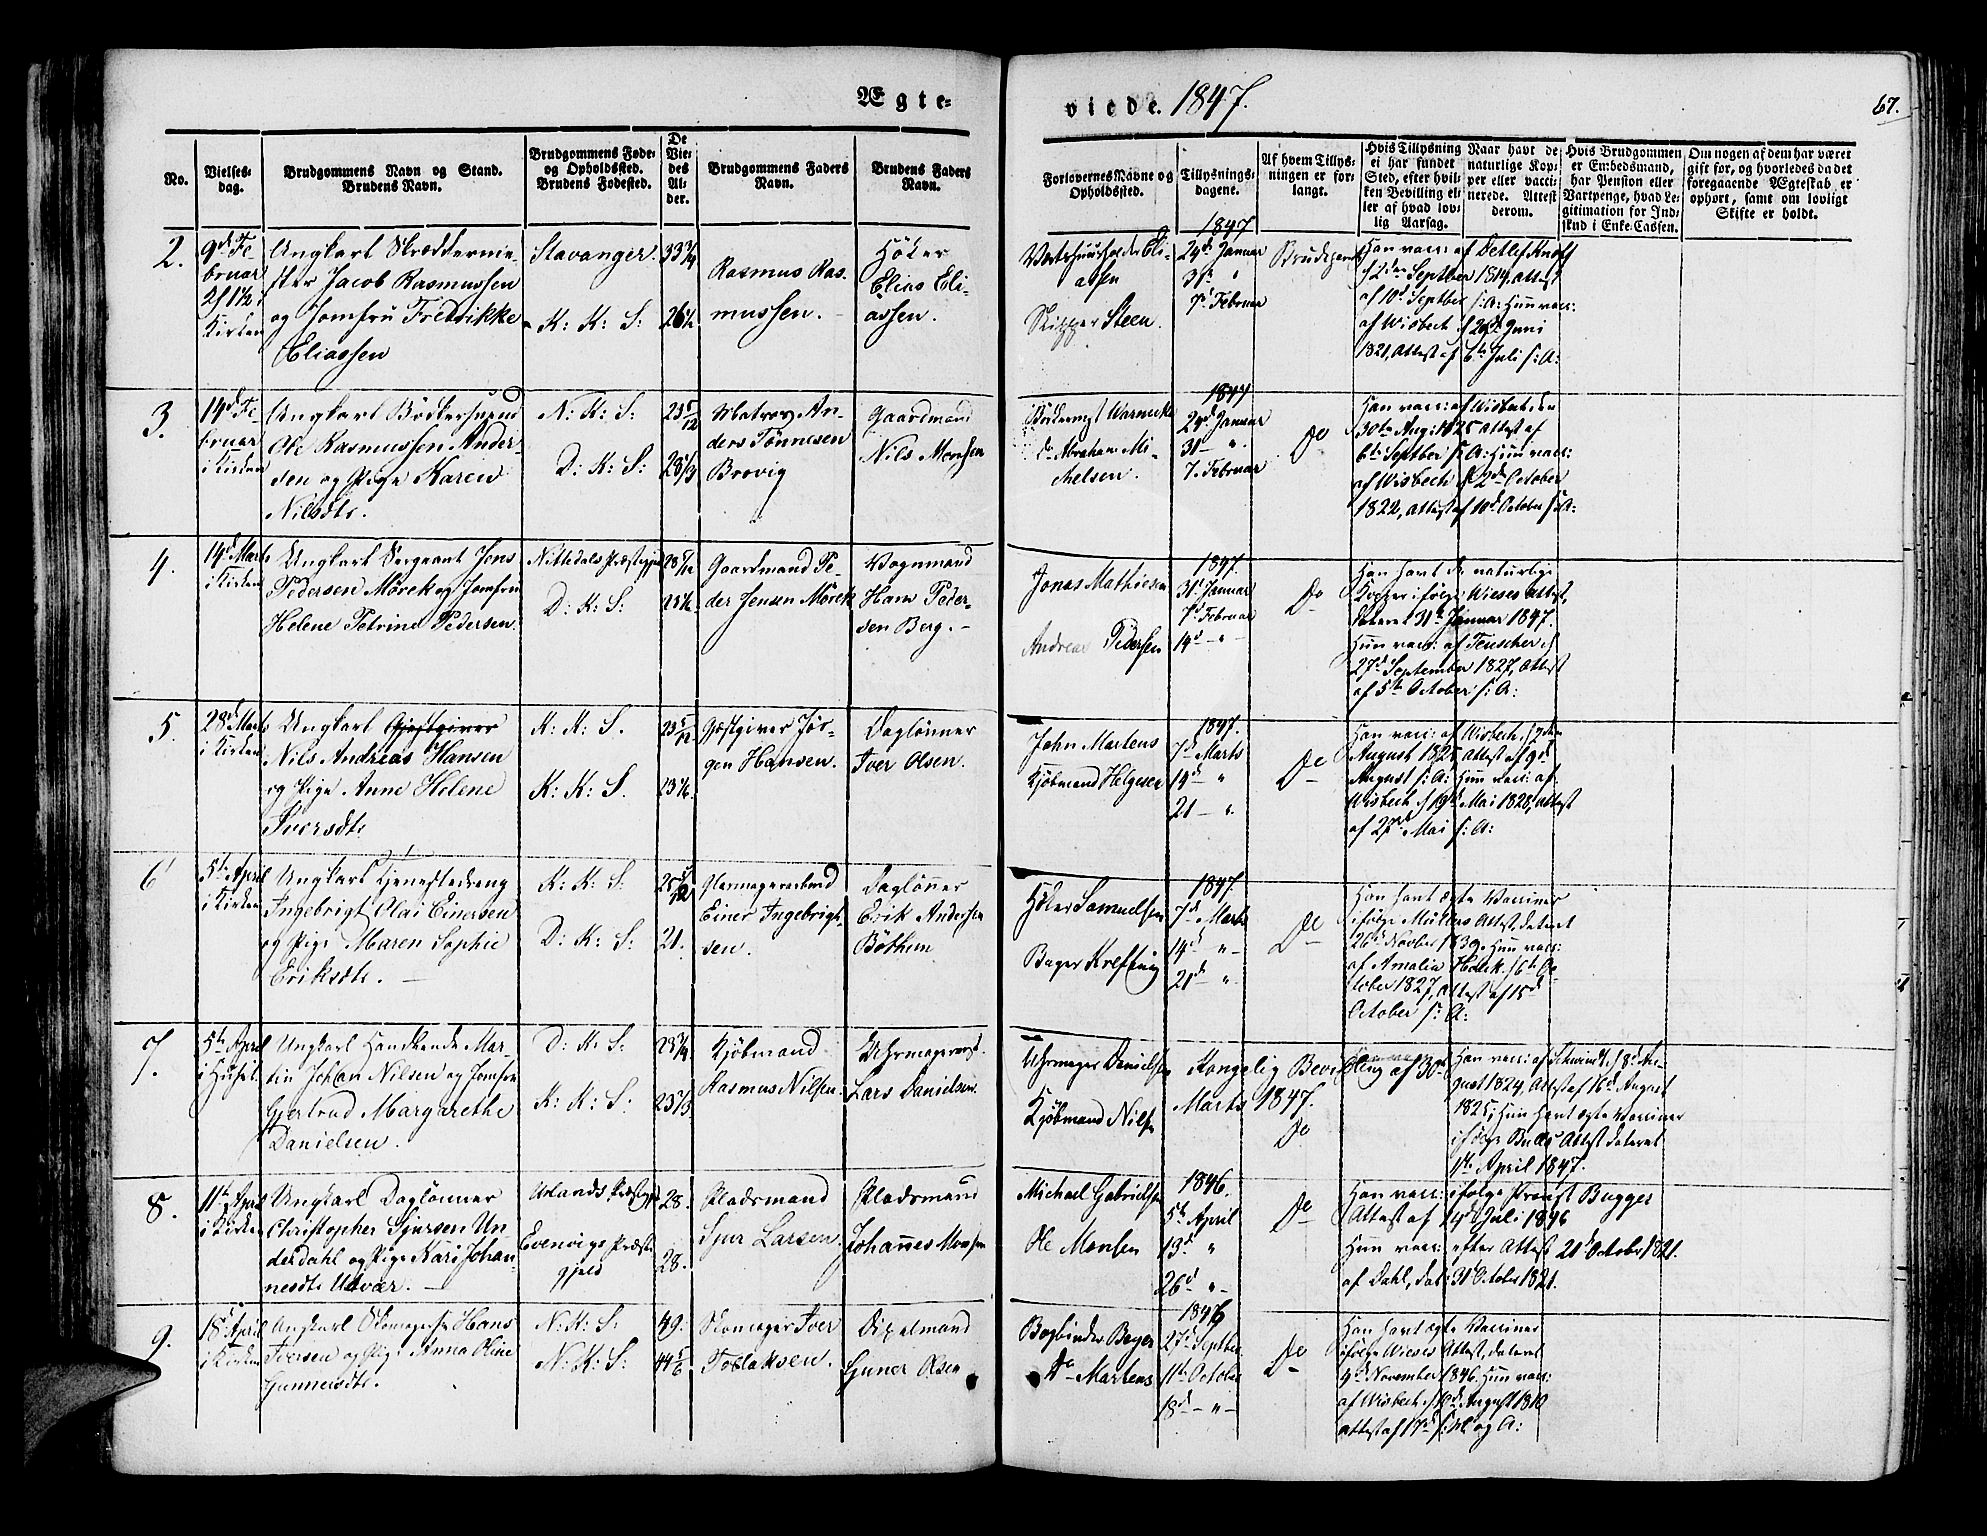 Ægte-
viede. 1847.
67.
No.
Vielses-
dag.
Brudgommens Navn og Stand.
Brudens Navn.
Brudgommens Føde-
og Opholdssted.
Brudens Fødested.
De
Vie-
des
Al-
der.
Brudgommens Faders
Navn.
Brudens Faders
Navn.
Forlovernes Navne og
Opholdssted.
Tillysnings-
dagene.
Af hvem Tillys-
ningen er for-
langt.
Hvis Tillysning
ei har fundet
Sted, efter hvil-
ken Bevilling el-
ler af hvad lov-
lig Aarsag.
Naar havt de
naturlige Kop-
per eller vacci-
nerede. Attest
derom.
Hvis Brudgommen
er Embedsmand,
har Pension eller
Vartpenge, hvad Le-
gitimation for Ind-
skud i Enke-Cassen.
Om nogen af dem har været
gift før, og hvorledes da det
foregaaende Ægteskab er
ophørt, samt om lovligt
Skifte er holdt.
2.
9d Fe-
bruar
i Kirken
Ungkarl Skræddermes-
ster Jacob Rasmussen
og Jomfru Fredrikke
Eliassen
Stavanger.
K: K: S:
33 3/4
26 1/2
Rasmus Ras-
mussen.
Høker
Elias Eli-
assen.
Eli-
assen
Skipper Steen.
1847
24d Januar
31d "
7d Februar
Brudgom
Han vacc: af Detlef Knoff
d 2den Septber 1814, attest
af 10d Septber s: A: Hun vacc:
af Wisbech d 28d Juni
1821, Attest af 6te Juli s: A:
3.
14d Fe-
bruar
i Kirken
Ungkarl Bødkersvend
Ole Rasmussen Ander-
sen og Pige Karen
Nilsdtr.
N: K: S:
D: K: S:
23 5/12
25 1/3
Matros An-
ders Tønnesen
Brovig
Gaardmand
Nils Monsen
Warnecke
do Abraham Mi-
kelsen.
1847
24d Januar
31 "
7. Februar
Do
Han vacc: af Wisbech den
30te Aug: 1825 Attest af
6te Septber s: A: Hun vacc:
af Wisbech d 2d October
1822, Attest af 10d October s: A:
4.
14d Marts
i Kirken
Ungkarl Sergeant Jens
Pedersen Mørek og Jomfru
Helene Petrine Pedersen.
Nittedals Præstegjeld
D: K: S:
28 5/12
25 1/2
Gaardmand Pe-
der Jensen Mørek
Vognmand
Hans Peder-
sen Berg.
Jonas Mathiesen
Andreas Pedersen
1847.
31d Januar
7d Februar
14d "
Do
Han havt de naturlige
Kopper ifølge Wieses Attest,
dateret 31te Januar 1847.
Hun vacc: af Teuscher d
27d September 1827, Attest
af 5te October s: A:
5.
28d Marts
i Kirken
Ungkarl Gjestgiver
Nils Andreas Hansen
og Pige Anne Helene
Iversdtr
K: K: S.
K: K: S.
23 5/12
23 1/2
Gjestgiver Jør-
gen Hansen.
Daglønner
Iver Olsen.
John Martens
Kjøbmand Helgesen
1847.
7d Marts
14d "
21 "
Do
Han vacc: af Wisbech d 2den
August 1825, Attest af 9d
August s: A: Hun vacc: af
Wisbech d 19d Mai 1828, attest
af 27d Mai s: A:
6
5te April
i Kirken
Ungkarl Tjenestedreng
Ingebrigt Olai Einersen
og Pige Maren Sophie
Eriksdtr.
K: K: S:
D: K: S:
25
21.
Einer Ingebrigt-
sen.
Daglønner
Erik Andersen
Bøthun
Høker Samuelsen
Bager Krefting
1847.
7d Marts
14d "
21d "
Do
Han havt ægte Vacciner
ifølge Müllers Attest, dateret
26d Novber 1839. Hun vacc:
af Amalia Holck d 6te Oc-
tober 1827, attest af 15d
October s: A:
7.
5te April
i Huset
Ungkarl Handlende Mar-
tin Johan Nilsen og Jomfru
Gjertrud Margarethe
Danielsen.
D: K: S:
K: K: S:
23 3/4
23 1/3
Kjøbmand
Rasmus Nilsen.
Uhrmager
Lars Danielsen.
Uhrmager Danielsen
Kjøbmand Nilsen
Kongelig Bevilling af 30te
Marts 1847.
Do
Han vacc: af Schwindt d 8d Au-
gust 1824, Attest af 16d August
1825, Hun havt ægte Vacciner
ifølge Bulls Attest dateret
1ste April 1847.
8.
11te April
i Kirken
Ungkarl Daglønner
Christopher Sjursen Un-
derdahl og Pige Kari Johan-
nesdtr Udvær.
Urlands Præstegjeld
Evenvigs Præste-
gjeld
28.
28.
Pladsmand
Sjur Larsen.
Pladsmand
Johannes Monsen
Michael Gabrielsen
Ole Monsen
1846.
5te April
13d "
26d "
Do
Han vacc: ifølge Provst Bugger
Attest af 14d Juli 1846
Hun vacc: efter Attest 21d October 1821.
af Dahl, dat: 31d October 1821.
9.
18d April
i Kirken
Ungkarl Skomager Hans
Iversen og Pige Anna Oline
Gunnersdtr.
N: K: S:
N: K: S:
49.
44 5/6
Skomager Iver
Torlaksen.
Gunner Olsen
Bogbinder Beyer
Do Martens
1846
27d Septber
11te October
18d "
Do
Han havt ægte Vacciner
ifølge Wieses Attest, dateret
4d November 1846. Hun vacc:
af Wisbech d 10d August 1810
attest af 17d s: M: og A: